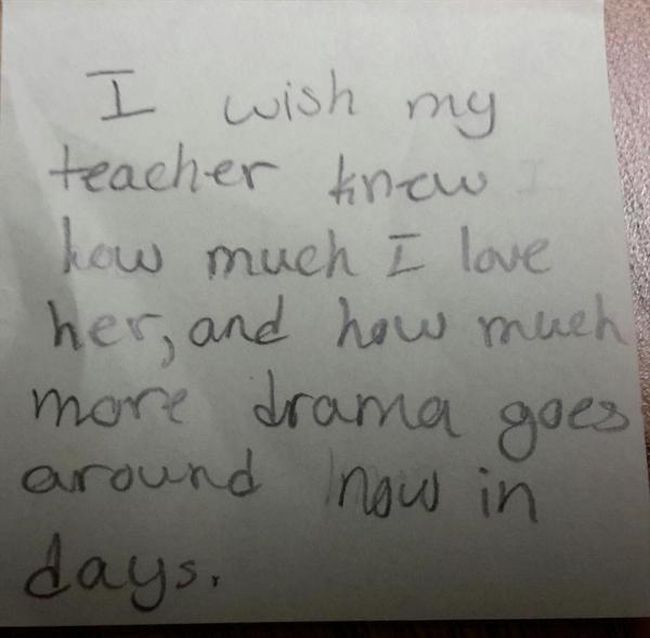 I wish my
teacher knew
how much I love
her, and how much
more drama goes
around now in
days.